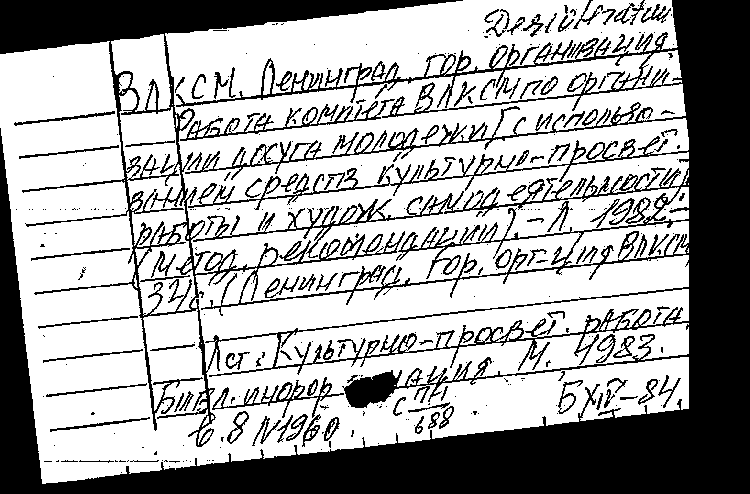 Desideratum
ВЛКСМ. Ленинград. гор. организация.
Работа комитета ВЛКСМ по органи-
зации досуга молодежи [с использо-
ванием средств культурно-просвет.
работы и худож. самодеятельности]
(метод. рекомендации). - Л. 1982. -
34с. (Ленинград. Гор. орг-ция ВЛКСМ
Ист: Культурно-просвет. работа.
Библ. инфор ация. М. 1983.
6.8 N1960. с 711/688 Б XIV-84.